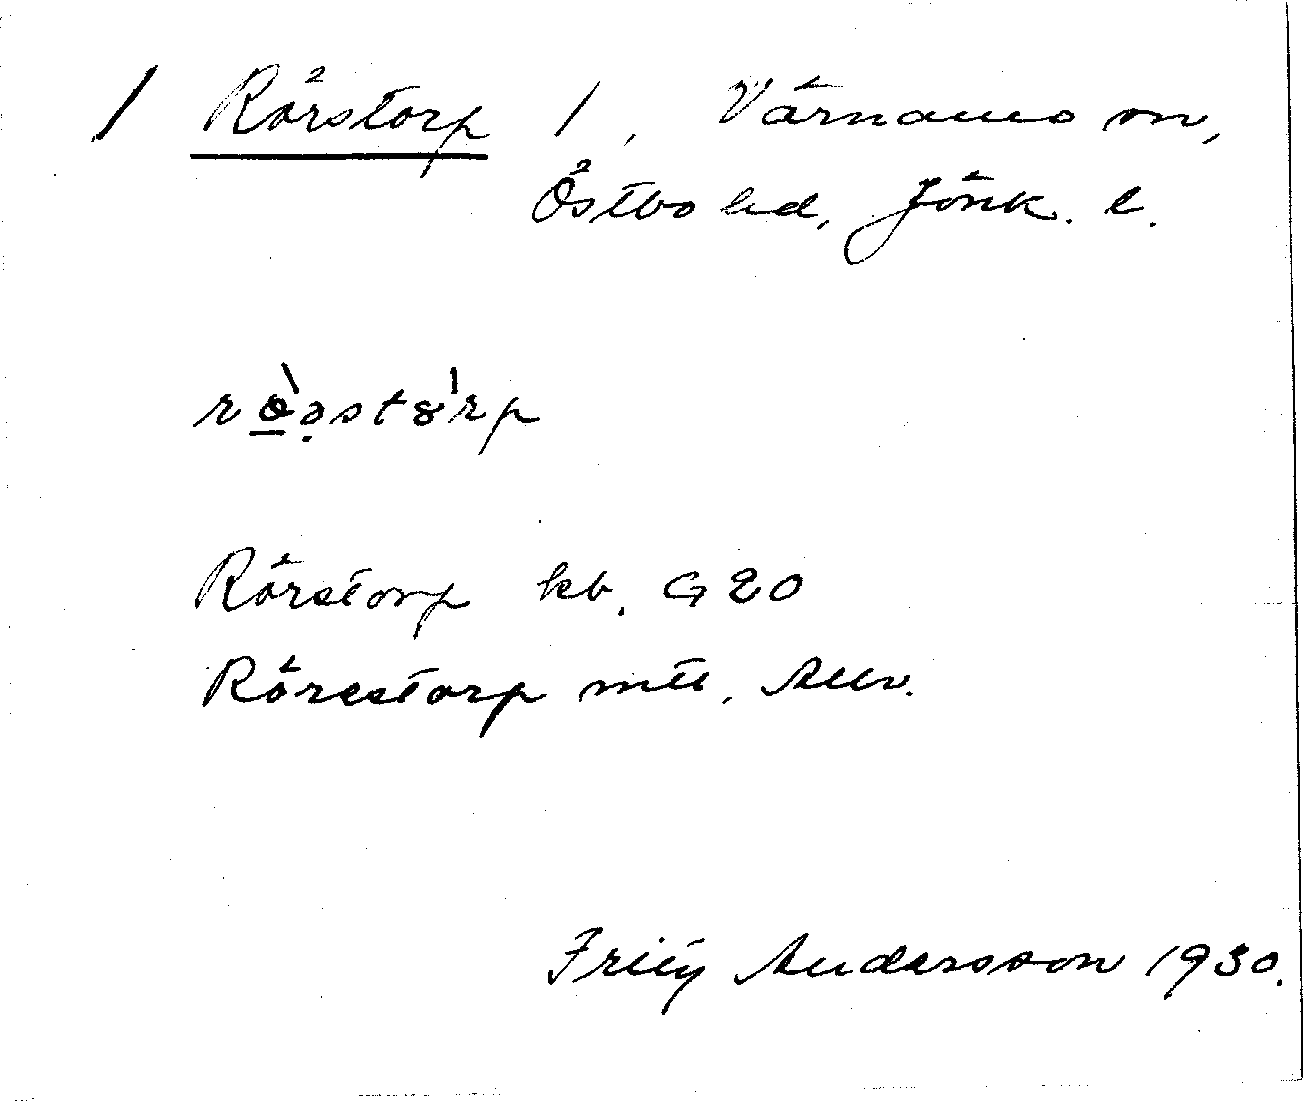 1 Rörstorp 1, Värnamo sn,
Östbo hd, Jönk. l.
Rörstorp kb. G 20
Rörestorp mtl. Allm.
Fritz Andersson 1930.